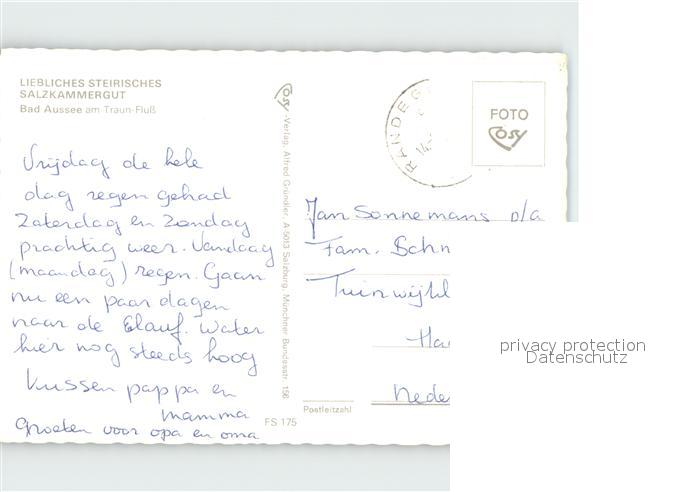 LIEBLICHES STEIRISCHES
SALZKAMMERGUT
Bad Aussee am Traun-Fluß
Vrijdag de hele
dag regen gehad
Zaterdag en Zondag
prachtig weer. Vandaag
(maandag) regen. Gaan
nu een paar dagen
naar de Elauf. Water
hier nog steeds hoog
Kussen pappa en
mamma
Groeten voor opa en oma
FS 175
Cosy-Verlag, Alfred Gründler, A-5013 Salzburg, Münchner Bundesstr. 156
RANDEG
14.
FOTO
Cosy
Jan Sonnemans p/a
Fam. Schn
Tuinwijkl
Ha
Nede
Postleitzahl
privacy protection
Datenschutz